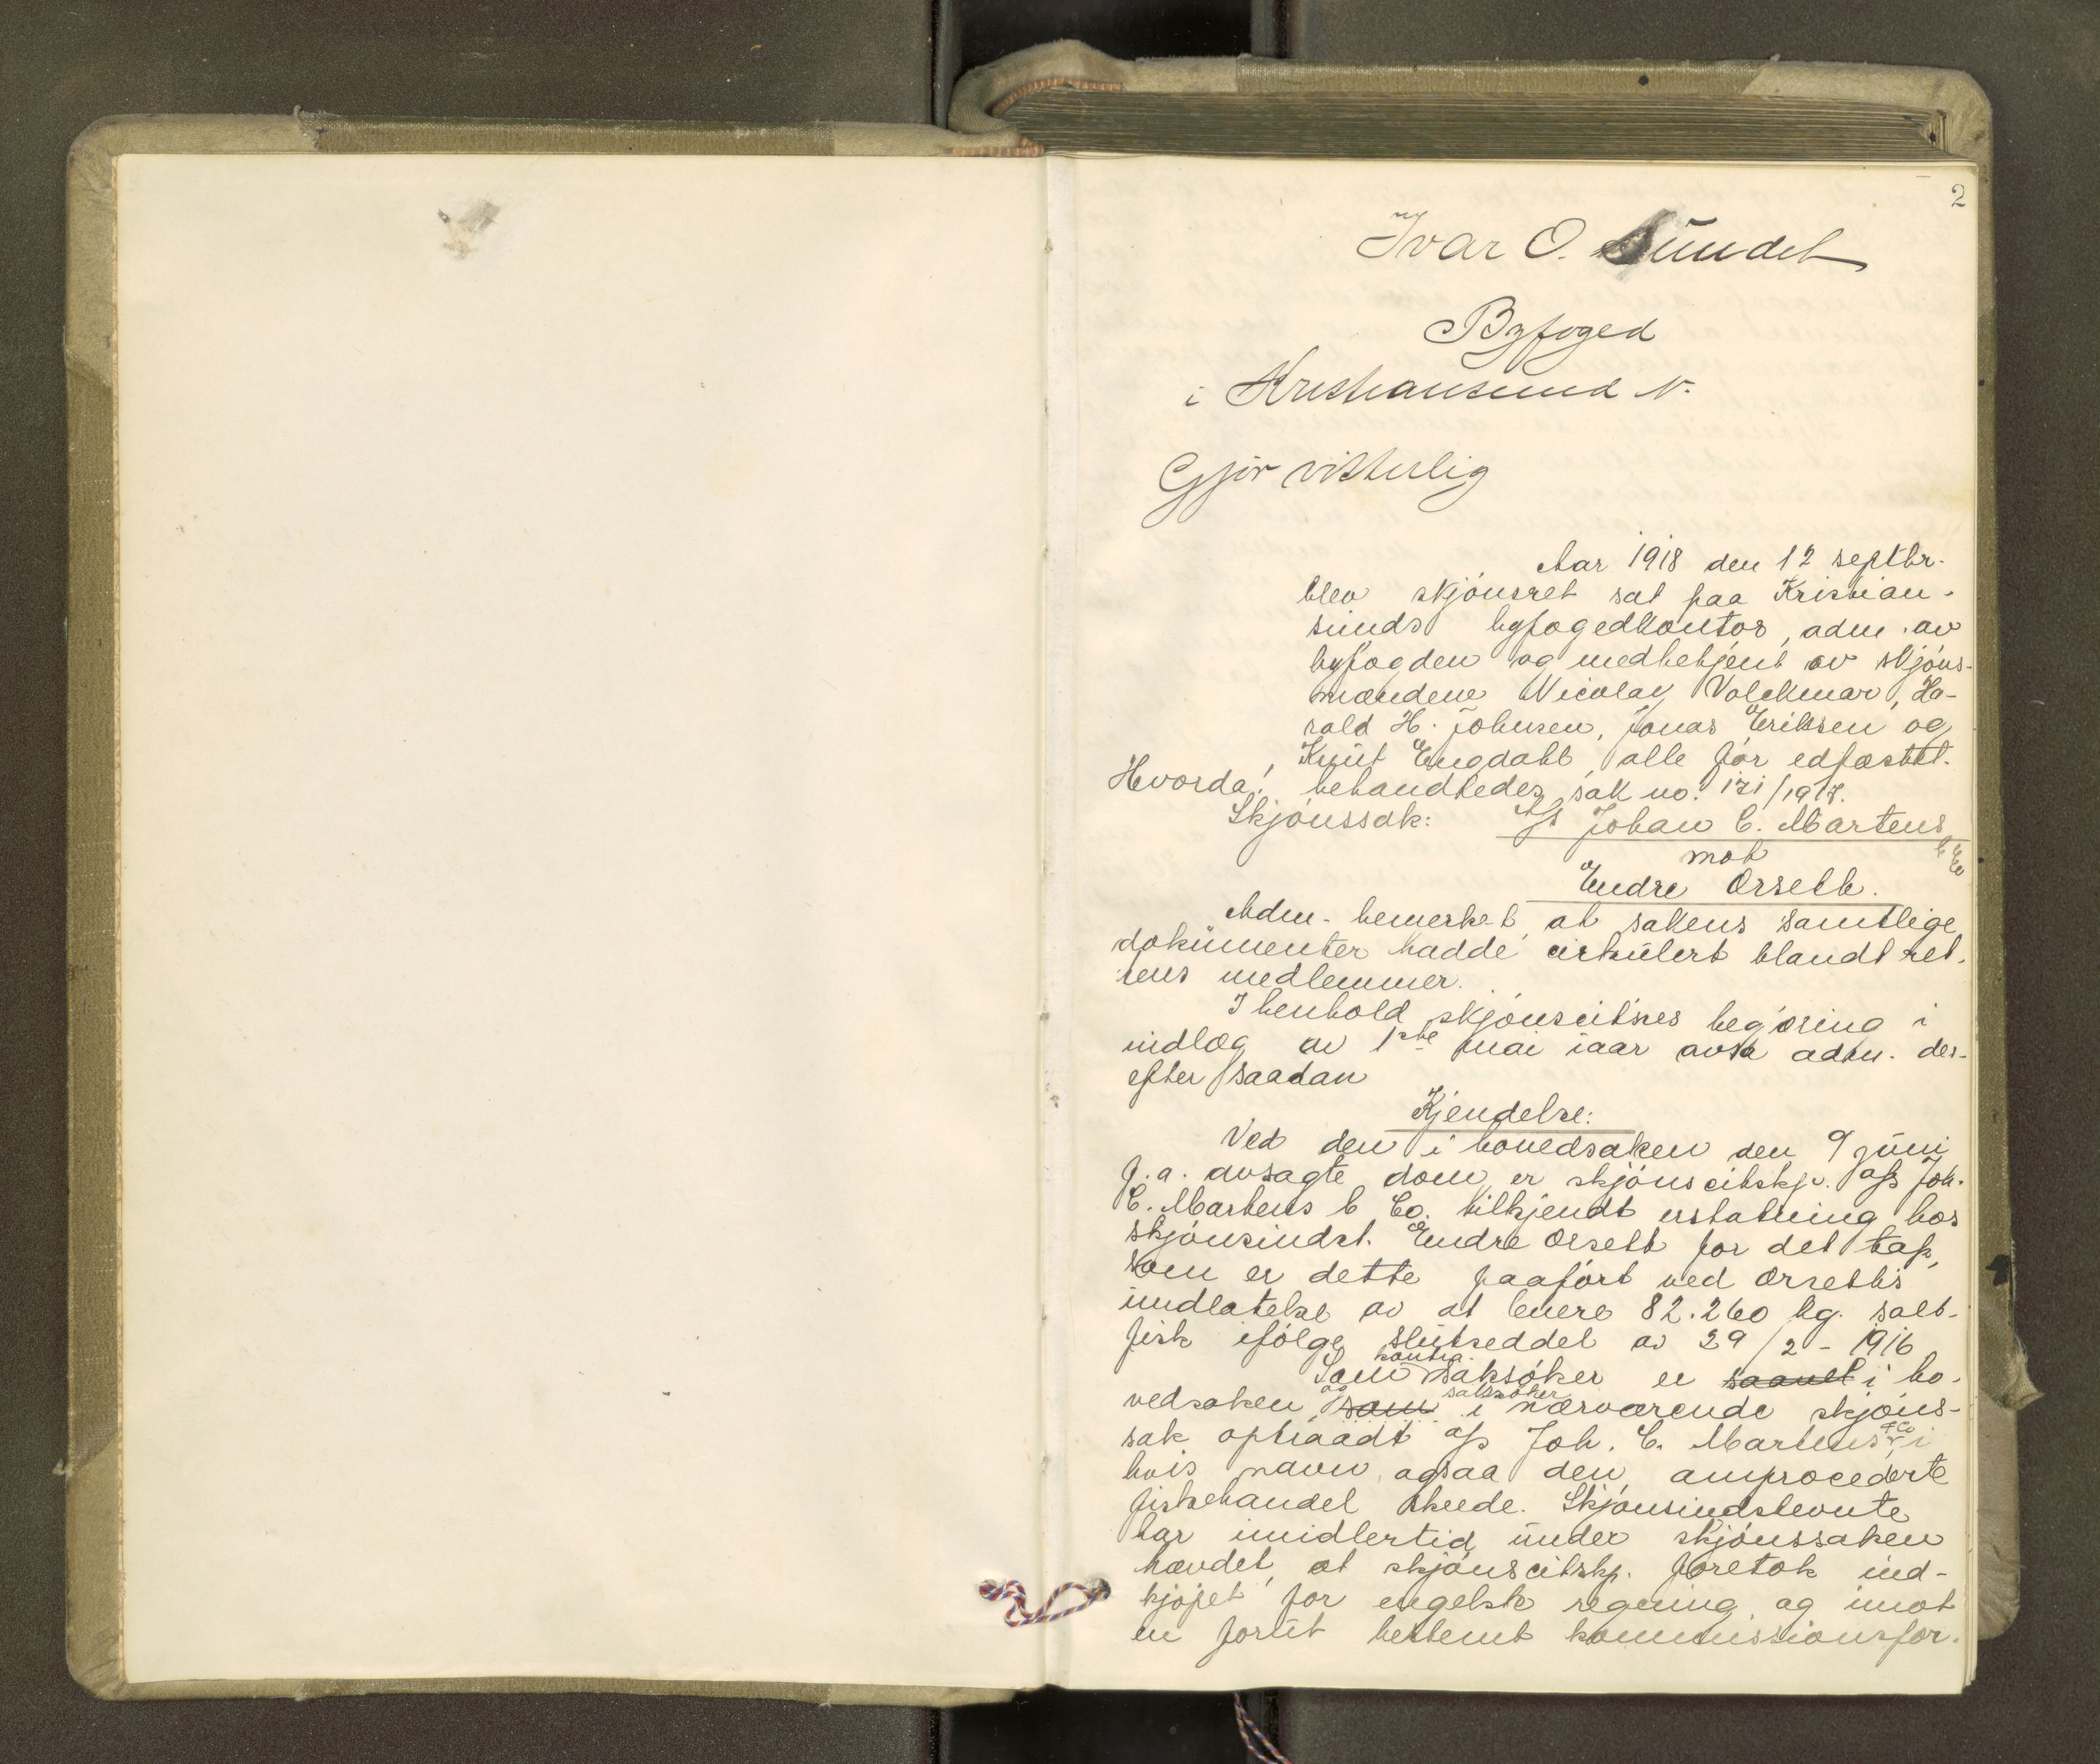 2
Ivar O. Sundet
Byfoged
i Kristiansund N.
Gjör vitterlig
Aar 1918 den 12 septbr.
blev skjönsret sat paa Kristian-
sunds byfogedkontor, adm. av
byfogden og medbetjent av skjöns-
mændene Nicolay Volckmar, Ha-
rald H. Johnsen, Jonas Eriksen og
Knut Engdahl, alle för edfæstet.
Hvorda! behandledes sak no. 171/1917.
Skjönssak: A/S Johan C. Martens
& Co
mot
Endre Orseth.
Adm. bemerket, at sakens samtlige
dokumenter hadde cirkulert blandt ret-
tens medlemmer.
I henhold skjönscitnes begjæring i
indlæg av 1ste mai iaar avsa adm. der-
efter saadan
Kjendelse:
Ved den i hovedsaken den 9 juni
f.a. avsagte dom er skjönscitskp. A/S Joh.
C. Martens & Co. tilkjendt erstatning hos
skjönsindst. Endre Orseth for det tap,
som er dette paafört ved Orseths
undlatelse av at levere 82.260 kg. salt-
fisk ifölge slutseddel av 29/2 - 1916
kontra
Som saksöker er saavel i ho-
og saksöker
vedsaken som i nærværende skjöns-
sak optraadt A/S Joh. C. Martens & Co i
hvis navn ogsaa den omprocederte
fiskehandel skeede. Skjönsindstevnte
har imidlertid under skjönssaken
hævdet, at skjönscitskp. foretok ind-
kjöpet for engelsk regning og imot
en forut bestemt kommissionsfor-